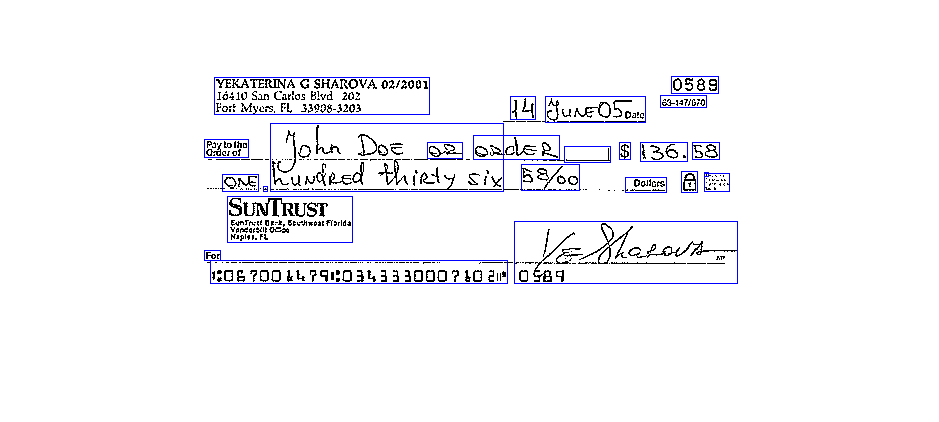 YEKATERINA G SHAROVA 02/2001 0589
16410 San Carlos Blvd 202
Fort Myers, FL 33908-3203 63-147/670
14 JUNE 05 Date
Pay to the Order of John DOE OR ORdER $ 136.58
ONE hUNdRED thirty six 58/00 Dollars
SUNTRUST
SunTrust Bank, Southwest Florida
Vanderbilt Office
Naples, FL
For YE Sharova MP
⑆067001479⑆0343330007102⑈ 0589